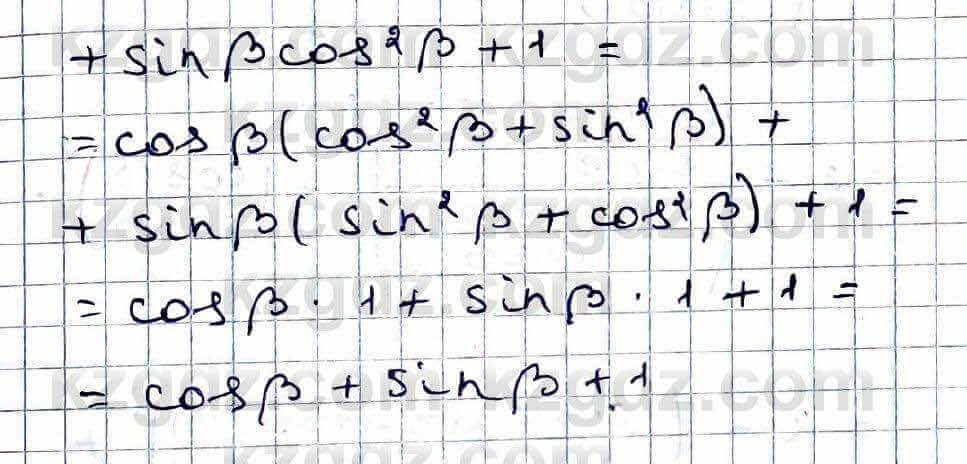 + sin β cos² β + 1 =
= cos β (cos² β + sin² β) +
+ sin β ( sin² β + cos² β) + 1 =
= cos β · 1 + sin β · 1 + 1 =
= cos β + sin β + 1